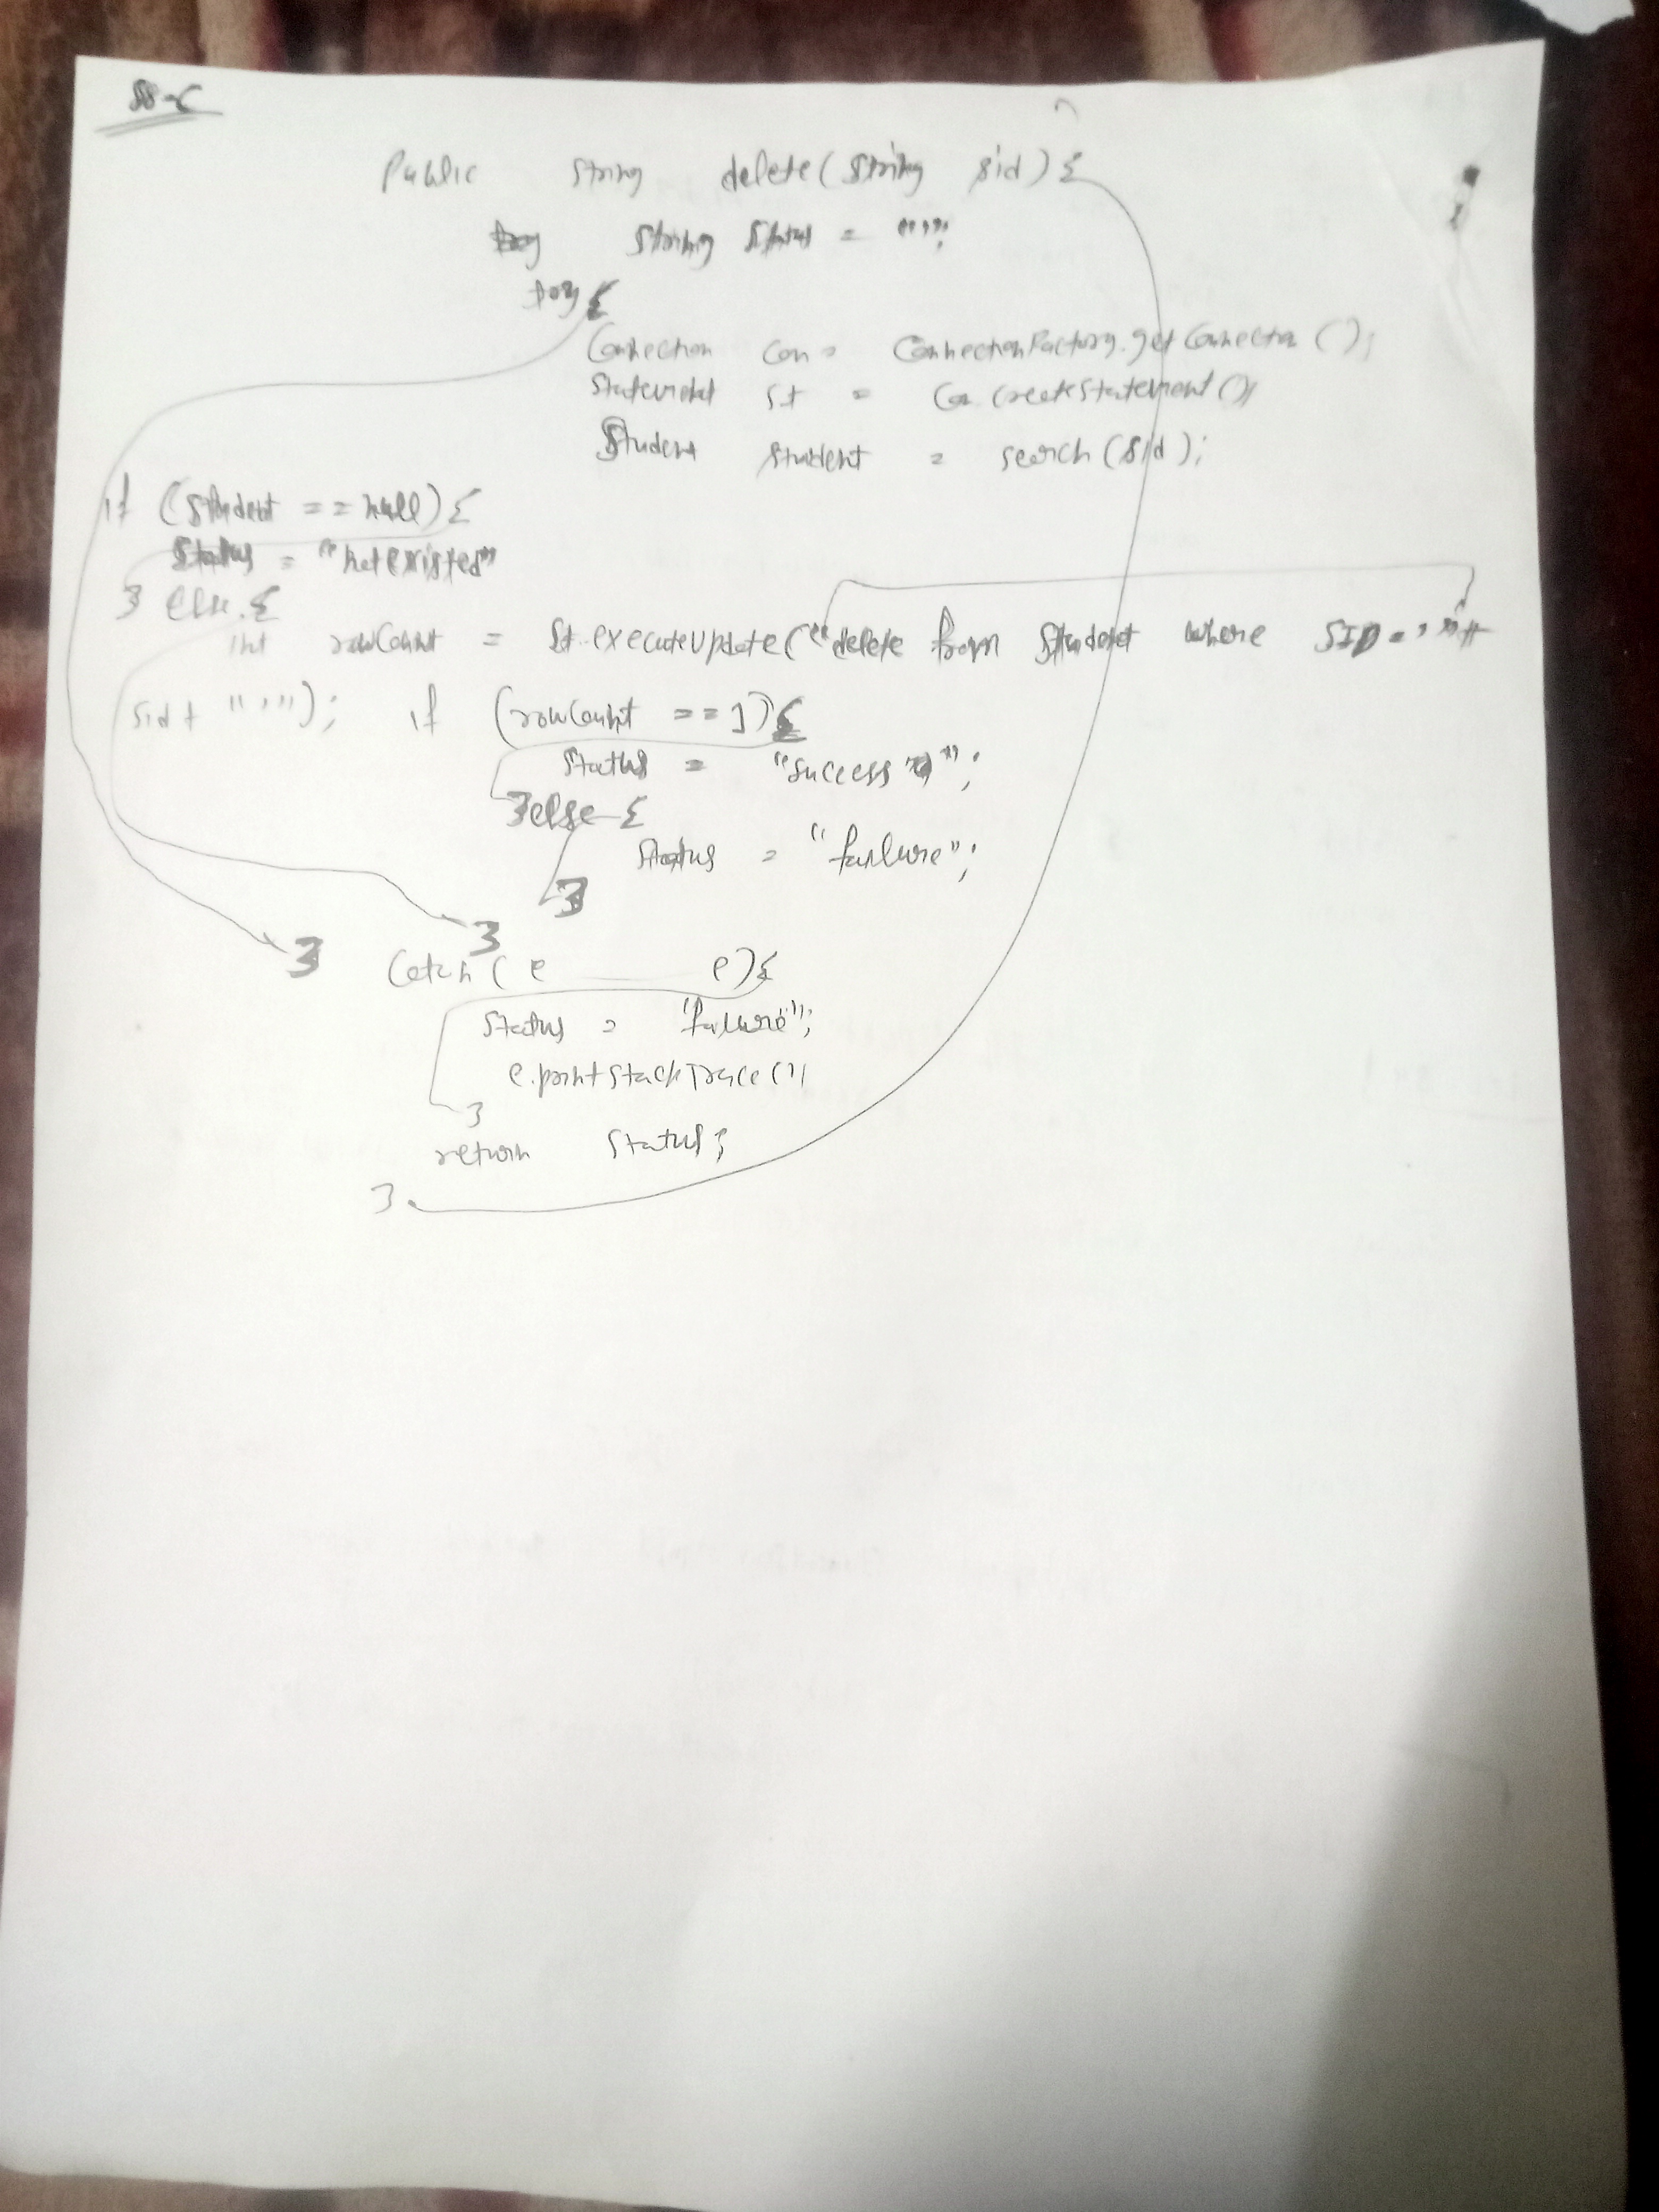 Public String delete(String sid) {
String status = "";
try {
Connection con = ConnectionFactory.getConnection();
Statement st = con.createStatement();
Student student = search(sid);
if (student == null) {
status = "notexisted"
} else {
int rowCount = st.executeUpdate("delete from student where SID='"+
sid+"'"); if (rowCount == 1) {
status = "success";
} else {
status = "failure";
}
}
} catch (e e) {
status = "failure";
e.printStackTrace();
}
return status;
}